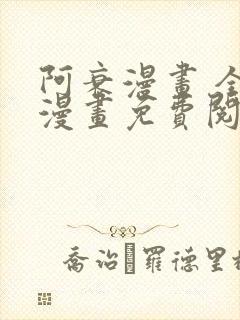 阿衰漫畫
漫畫免費閱
喬治 羅德里